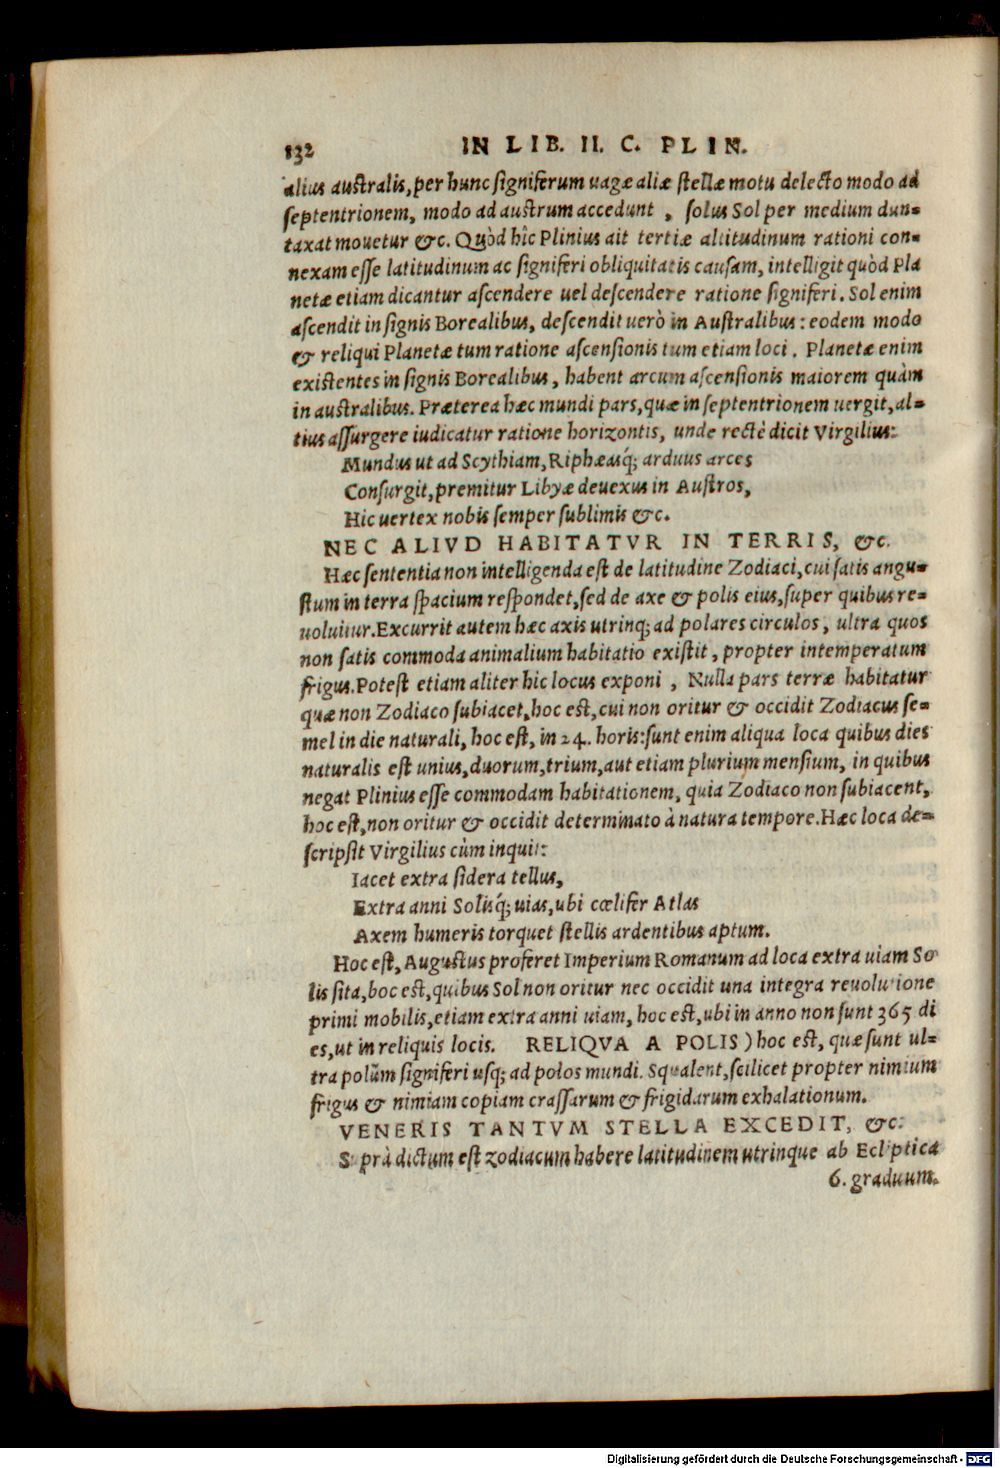 132 IN LIB. II. C. PLIN.
alius australis, per hunc signiferum uagæ aliæ stellæ motu delecto modo ad
septentrionem, modo ad austrum accedunt, solus Sol per medium dun-
taxat mouetur &c. Quòd hîc Plinius ait tertiæ altitudinum rationi con-
nexam esse latitudinum ac signiferi obliquitatis causam, intelligit quòd Pla
netæ etiam dicantur ascendere uel descendere ratione signiferi. Sol enim
ascendit in signis Borealibus, descendit uerò in Australibus: eodem modo
& reliqui Planetæ tum ratione ascensionis tum etiam loci. Planetæ enim
existentes in signis Borealibus, habent arcum ascensionis maiorem quàm
in australibus. Præterea hæc mundi pars, quæ in septentrionem uergit, al-
tius assurgere iudicatur ratione horizontis, unde rectè dicit Virgilius:
Mundus ut ad Scythiam, Riphæasq́; arduus arces
Consurgit, premitur Libyæ deuexus in Austros,
Hic uertex nobis semper sublimis &c.
NEC ALIVD HABITATVR IN TERRIS, &c.
Hæc sententia non intelligenda est de latitudine Zodiaci, cui satis angu-
stum in terra spacium respondet, sed de axe & polis eius, super quibus re-
uoluitur. Excurrit autem hæc axis utrinq; ad polares circulos, ultra quos
non satis commoda animalium habitatio existit, propter intemperatum
frigus. Potest etiam aliter hic locus exponi, Nulla pars terræ habitatur
quæ non Zodiaco subiacet, hoc est, cui non oritur & occidit Zodiacus se-
mel in die naturali, hoc est, in 24. horis: sunt enim aliqua loca quibus dies
naturalis est unius, duorum, trium, aut etiam plurium mensium, in quibus
negat Plinius esse commodam habitationem, quia Zodiaco non subiacent,
hoc est, non oritur & occidit determinato à natura tempore. Hæc loca de-
scripsit Virgilius cùm inquit:
Iacet extra sidera tellus,
Extra anni Solisq́; uias, ubi cœlifer Atlas
Axem humeris torquet stellis ardentibus aptum.
Hoc est, Augustus proferet Imperium Romanum ad loca extra uiam So
lis sita, hoc est, quibus Sol non oritur nec occidit una integra reuolutione
primi mobilis, etiam extra anni uiam, hoc est, ubi in anno non sunt 365 di
es, ut in reliquis locis. RELIQVA A POLIS) hoc est, quæ sunt ul-
tra polũm signiferi usq; ad polos mundi. Squalent, scilicet propter nimium
frigus & nimiam copiam crassarum & frigidarum exhalationum.
VENERIS TANTVM STELLA EXCEDIT, &c.
Suprà dictum est zodiacum habere latitudinem utrinque ab Ecliptica
6. graduum.
Digitalisierung gefördert durch die Deutsche Forschungsgemeinschaft - DFG